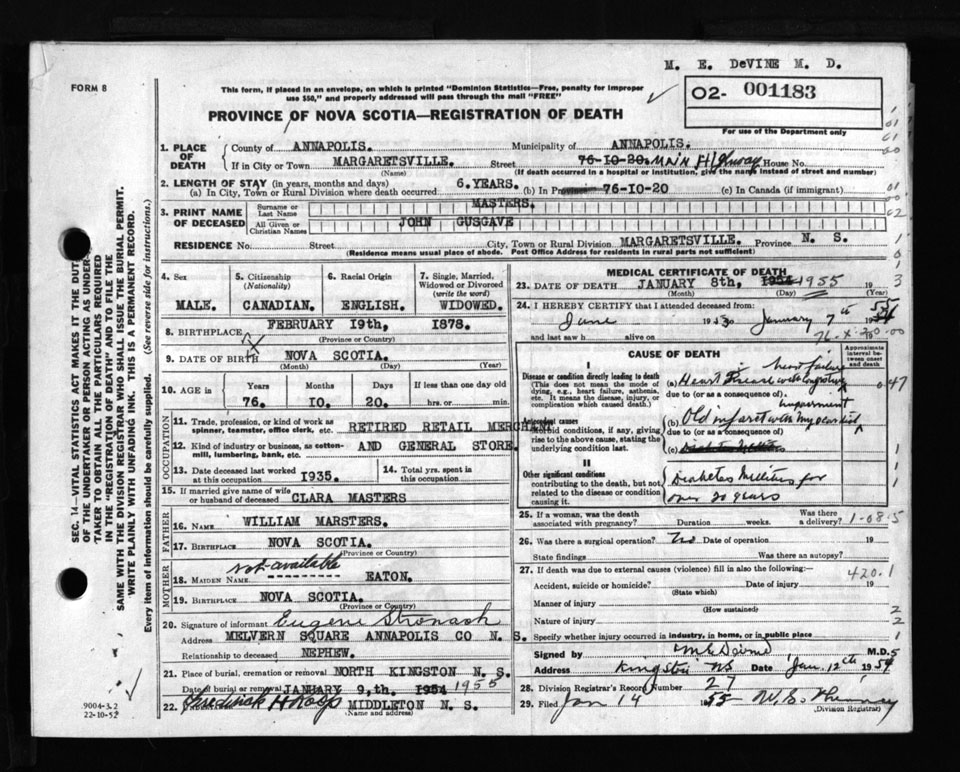 M. E. DeVINE M. D.
FORM 8
This form, if placed in an envelope, on which is printed "Dominion Statistics—Free, penalty for improper
use $50," and properly addressed will pass through the mail "FREE"
O2- 001183
For use of the Department only
PROVINCE OF NOVA SCOTIA—REGISTRATION OF DEATH
1. PLACE OF DEATH
County of ANNAPOLIS. Municipality of ANNAPOLIS.
If in City or Town MARGARETSVILLE. Street 76-IO-20. Main House No.
(Name) (If death occurred in a hospital or institution, give the name instead of street and number)
2. LENGTH OF STAY (in years, months and days)
(a) In City, Town or Rural Division where death occurred 6.YEARS. (b) In Pr 76-IO-20 (c) In Canada (if immigrant)
3. PRINT NAME OF DECEASED
Surname or Last Name MASTERS.
All Given or Christian Names JOHN GUSGAVE
RESIDENCE No. Street City, Town or Rural Division MARGARETSVILLE. Province N. S.
(Residence means usual place of abode. Post Office Address for residents in rural parts not sufficient)
4. Sex MALE.
5. Citizenship (Nationality) CANADIAN.
6. Racial Origin ENGLISH.
7. Single, Married, Widowed or Divorced (write the word) WIDOWED.
8. BIRTHPLACE FEBRUARY 19th, 1878.
(Province or Country)
9. DATE OF BIRTH NOVA SCOTIA.
(Month) (Day) (Year)
10. AGE in Years Months Days If less than one day old
76. IO. 20. hrs. or min.
OCCUPATION
11. Trade, profession, or kind of work as spinner, teamster, office clerk, etc. RETIRED RETAIL MERCH
12. Kind of industry or business, as cotton-mill, lumbering, bank, etc. AND GENERAL STORE.
13. Date deceased last worked at this occupation I935.
14. Total yrs. spent in this occupation
15. If married give name of wife or husband of deceased CLARA MASTERS
FATHER
16. NAME WILLIAM MARSTERS.
17. BIRTHPLACE NOVA SCOTIA.
(Province or Country)
MOTHER
18. MAIDEN NAME not available EATON.
19. BIRTHPLACE NOVA SCOTIA.
(Province or Country)
20. Signature of informant Eugene Stronach
Address MELVERN SQUARE ANNAPOLIS CO N. S.
Relationship to deceased NEPHEW.
21. Place of burial, cremation or removal NORTH KINGSTON N. S.
Date of burial or removal JANUARY 9,th. 1954 1955
22. Fredrick H Roop MIDDLETON N. S.
(Name and address)
MEDICAL CERTIFICATE OF DEATH
23. DATE OF DEATH JANUARY 8th, 1954 1955 19
(Month) (Day) (Year)
24. I HEREBY CERTIFY that I attended deceased from:
June 19 January 7th 19
and last saw h alive on 19
CAUSE OF DEATH
Approximate interval between onset and death
I
Disease or condition directly leading to death
(This does not mean the mode of dying, e.g., heart failure, asthenia, etc. It means the disease, injury, or complication which caused death.)
(a) Heart Disease with congestive heart failure
due to (or as a consequence of)
Antecedent causes
Morbid conditions, if any, giving rise to the above cause, stating the underlying condition last.
(b) Old infarct with myocardial impairment
due to (or as a consequence of)
(c)
II
Other significant conditions
contributing to the death, but not related to the disease or condition causing it.
Diabetes Mellitus for
over 20 years
25. If a woman, was the death associated with pregnancy? Duration weeks. Was there a delivery?
26. Was there a surgical operation? No Date of operation 19
State findings Was there an autopsy?
27. If death was due to external causes (violence) fill in also the following:—
420.1
Accident, suicide or homicide? Date of injury 19
(State which)
Manner of injury
(How sustained)
Nature of injury
Specify whether injury occurred in industry, in home, or in public place
Signed by M.D.
Address Kingston NS Date Jan. 12th 19
28. Division Registrar's Record Number 27
29. Filed Jan 14 1955
(Division Registrar)
SEC. 14—VITAL STATISTICS ACT MAKES IT THE DUTY
OF THE UNDERTAKER OR PERSON ACTING AS UNDER-
TAKER TO OBTAIN ALL THE PARTICULARS REQUIRED
IN THE "REGISTRATION OF DEATH" AND TO FILE THE
SAME WITH THE DIVISION REGISTRAR WHO SHALL ISSUE THE BURIAL PERMIT.
WRITE PLAINLY WITH UNFADING INK. THIS IS A PERMANENT RECORD.
Every item of information should be carefully supplied. (See reverse side for instructions.)
9004-3.2
22-10-52